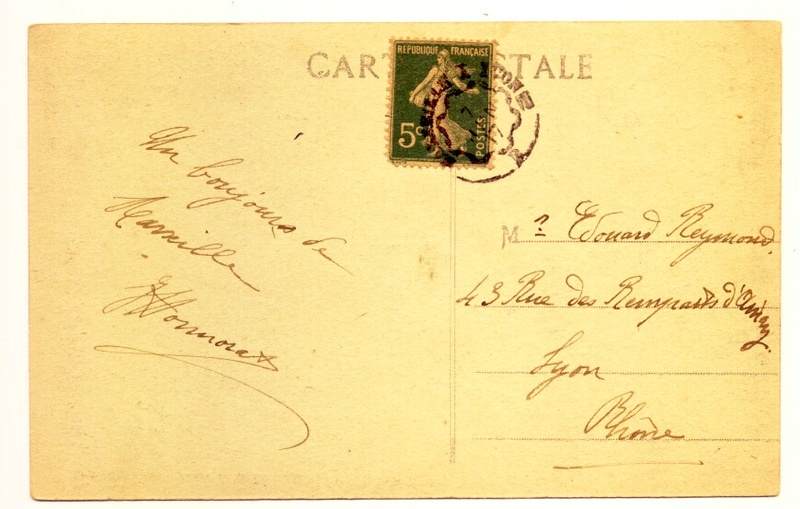 CARTE POSTALE
REPUBLIQUE FRANÇAISE
5c
POSTES
Un bonjours de
Marseille
Honnorat
Mr Edouard Reymond
43 Rue des Remparts d'Ainay
Lyon
Rhône